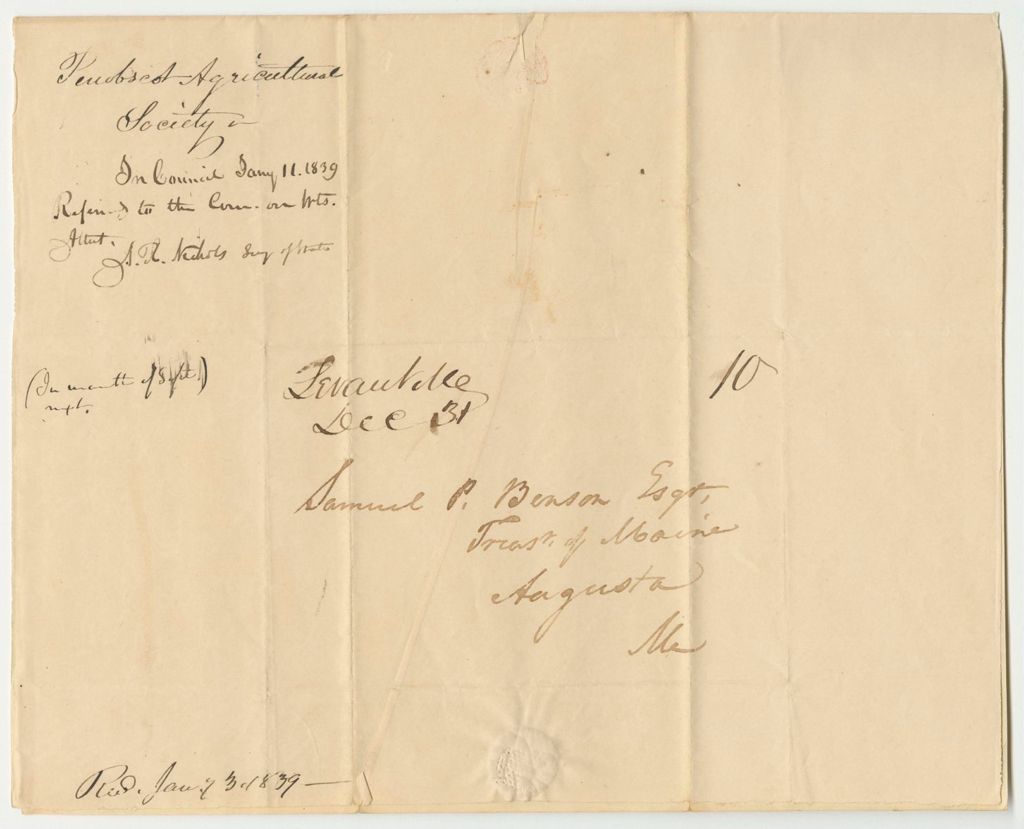 Penobscot Agricultural
Society
In Council Jany 11. 1839
Referred to the Com. on Wts.
Attest,
A. R. Nichols Secy of State
(In month of Sept.)
next.
Levant Me
Dec 31
10
Samuel P. Benson Esqr,
Treasr. of Maine
Augusta
Me
Recd. Jany 3d 1839 —